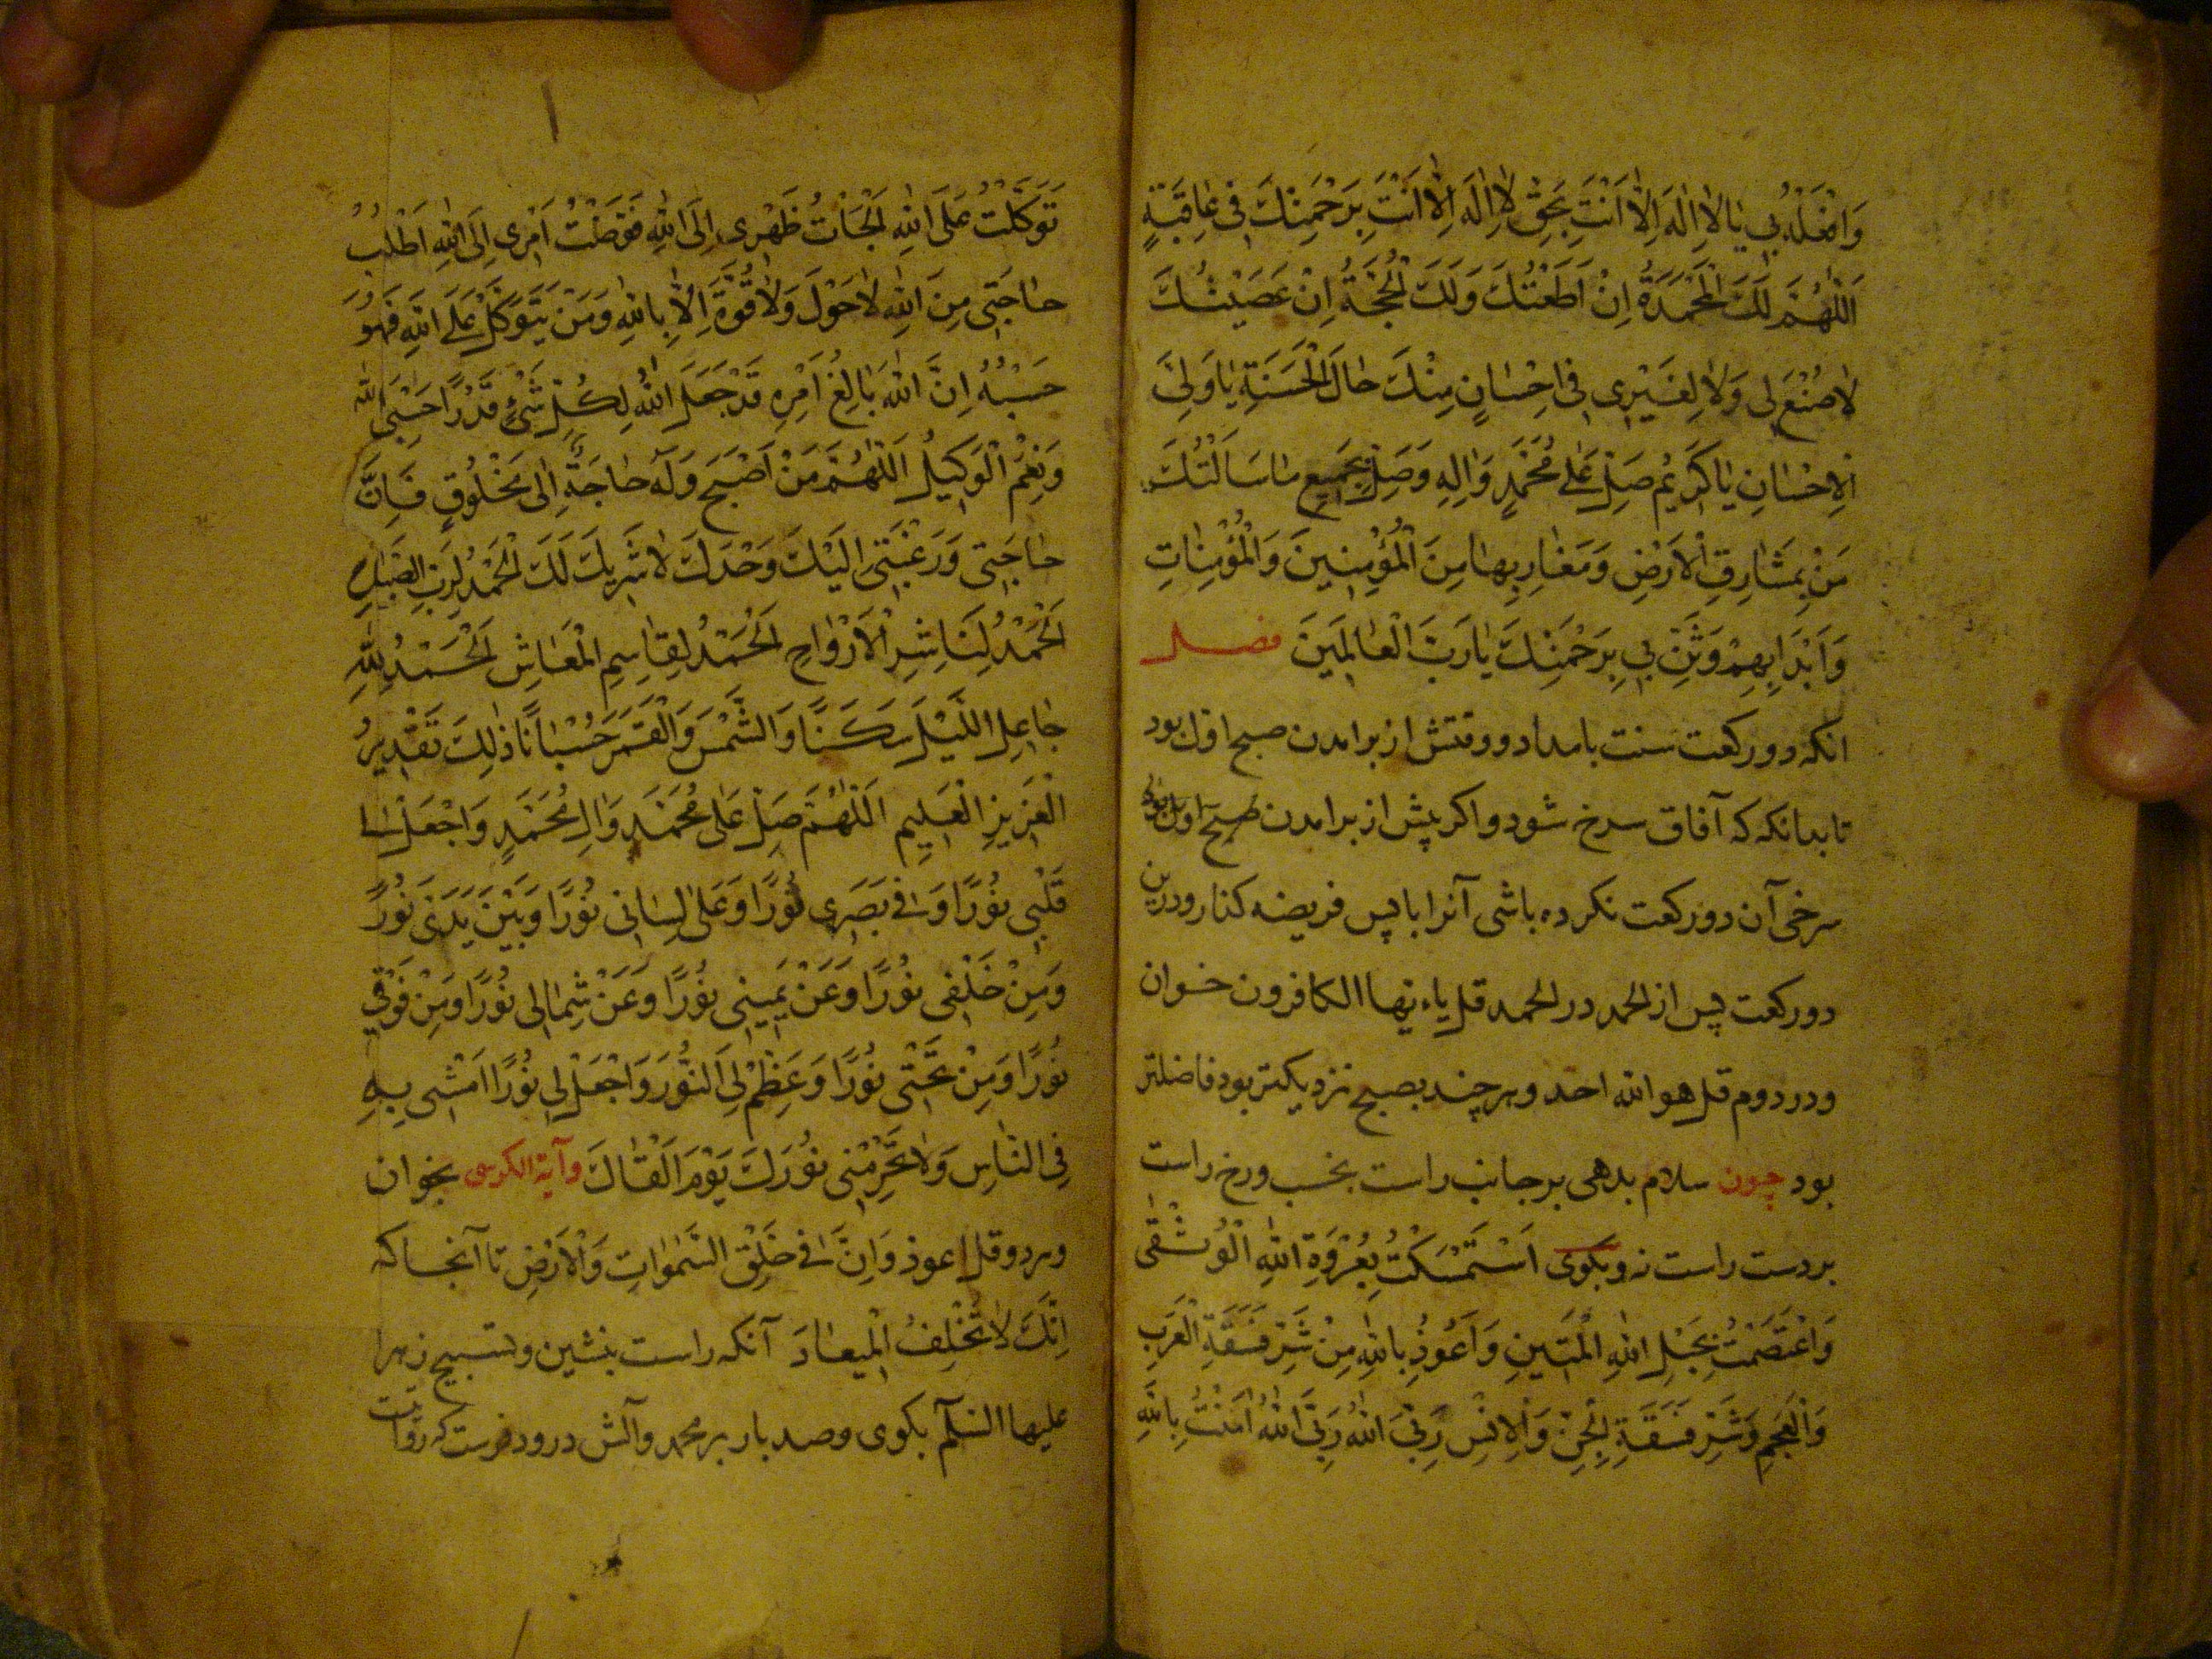 وَافْعَلْهُ بِي يَا لَا اِلٰهَ اِلَّا اَنْتَ بِحَقِّ لَا اِلٰهَ اِلَّا اَنْتَ بِرَحْمَتِكَ فِي عَافِيَةٍ
اَللّٰهُمَّ لَكَ الْمَحْمَدَةُ اِنْ اَطَعْتُكَ وَلَكَ الْحُجَّةُ اِنْ عَصَيْتُكَ
لَا صُنْعَ لِي وَلَا لِغَيْرِي فِي اِحْسَانٍ مِنْكَ حَالَ الْحَسَنَةِ يَا وَلِيَّ
الْاِحْسَانِ يَا كَرِيمُ صَلِّ عَلٰى مُحَمَّدٍ وَاٰلِهِ وَصِلْ بِجَمِيعِ مَا سَاَلْتُكَ
مَنْ بِمَشَارِقِ الْاَرْضِ وَمَغَارِبِهَا مِنَ الْمُؤْمِنِينَ وَالْمُؤْمِنَاتِ
وَاَبْدَا بِهِمْ وَثَنِّ بِي بِرَحْمَتِكَ يَا رَبَّ الْعَالَمِينَ فصل
انكه دو ركعت سنت بامداد و وقتش از برامدن صبح اول بود
تا بدانكه كه آفاق سرخ شود و اكر پيش از برامدن صبح اول بود
سرخى آن دو ركعت نكرده باشى آنرا با پس فريضه كنار و در اين
دو ركعت پس از الحمد در الحمد قل ياءيها الكافرون خوان
و در دوم قل هو الله احد و هر چند بصبح نزديكتر بود فاضلتر
بود چون سلام بدهى بر جانب راست بخسب و رخ راست
بر دست راست نه و بكوى اَسْتَمْسَكْتُ بِعُرْوَةِ اللهِ الْوُثْقٰى
وَاعْتَصَمْتُ بِحَبْلِ اللهِ الْمَتِينِ وَاَعُوذُ بِاللهِ مِنْ شَرِّ فَسَقَةِ الْعَرَبِ
وَالْعَجَمِ وَشَرِّ فَسَقَةِ الْجِنِّ وَالْاِنْسِ رَبِّيَ اللهُ رَبِّيَ اللهُ اٰمَنْتُ بِاللهِ
تَوَكَّلْتُ عَلَى اللهِ اَلْجَاْتُ ظَهْرِي اِلَى اللهِ فَوَّضْتُ اَمْرِي اِلَى اللهِ اَطْلُبُ
حَاجَتِي مِنَ اللهِ لَا حَوْلَ وَلَا قُوَّةَ اِلَّا بِاللهِ وَمَنْ يَتَوَكَّلْ عَلَى اللهِ فَهُوَ
حَسْبُهُ اِنَّ اللهَ بَالِغُ اَمْرِهِ قَدْ جَعَلَ اللهُ لِكُلِّ شَيْءٍ قَدْرًا حَسْبِيَ اللهُ
وَنِعْمَ الْوَكِيلُ اَللّٰهُمَّ مَنْ اَصْبَحَ وَلَهُ حَاجَةٌ اِلٰى مَخْلُوقٍ فَاِنَّ
حَاجَتِي وَرَغْبَتِي اِلَيْكَ وَحْدَكَ لَا شَرِيكَ لَكَ الْحَمْدُ لِرَبِّ الصَّبَاحِ
اَلْحَمْدُ لِنَاشِرِ الْاَرْوَاحِ اَلْحَمْدُ لِقَاسِمِ الْمَعَاشِ اَلْحَمْدُ لِلّٰهِ
جَاعِلِ اللَّيْلَ سَكَنًا وَالشَّمْسَ وَالْقَمَرَ حُسْبَانًا ذٰلِكَ تَقْدِيرُ
الْعَزِيزِ الْعَلِيمِ اَللّٰهُمَّ صَلِّ عَلٰى مُحَمَّدٍ وَاٰلِ مُحَمَّدٍ وَاجْعَلْ فِي
قَلْبِي نُورًا وَفِي بَصَرِي نُورًا وَعَلٰى لِسَانِي نُورًا وَبَيْنَ يَدَيَّ نُورًا
وَمِنْ خَلْفِي نُورًا وَعَنْ يَمِينِي نُورًا وَعَنْ شِمَالِي نُورًا وَمِنْ فَوْقِي
نُورًا وَمِنْ تَحْتِي نُورًا وَعَظِّمْ لِيَ النُّورَ وَاجْعَلْ لِي نُورًا اَمْشِي بِهِ
فِي النَّاسِ وَلَا تَحْرِمْنِي نُورَكَ يَوْمَ اَلْقَاكَ وآية الكرسى بخوان
و هر دو قل اعوذ وَاِنَّ فِي خَلْقِ السَّمٰوَاتِ وَالْاَرْضِ تا آنجا كه
اِنَّكَ لَا تُخْلِفُ الْمِيعَادَ آنكه راست بنشين و تسبيح زهرا
عليها السلم بكوى و صد بار بر محمد و آلش درود فرست كه روايت